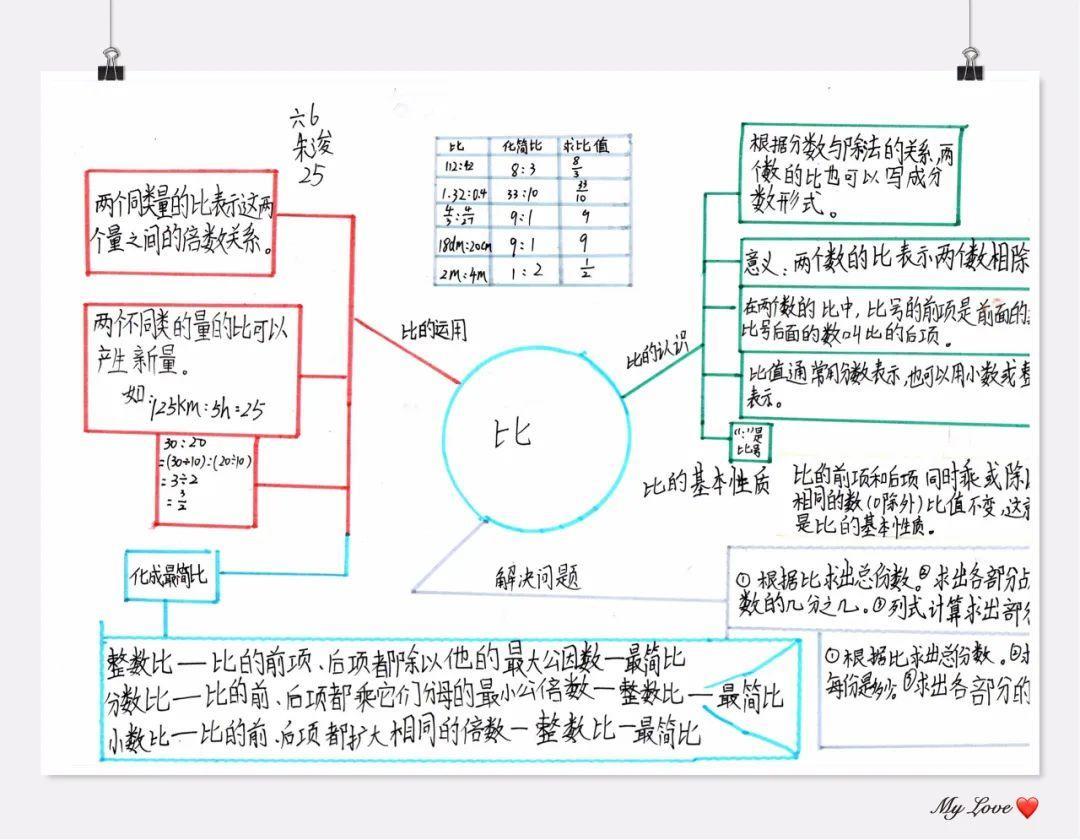 六6
朱浚
25
比 化简比 求比值
112:42 8:3 8/3
1.32:0.4 33:10 33/10
9:1 9
18dm:20cm 9:1 9
2m:4m 1:2 1/2
两个同类量的比表示这两
个量之间的倍数关系。
两个不同类的量的比可以
产生新量。
如:125km:5h=25
30:20
=(30÷10):(20÷10)
=3÷2
=3/2
化成最简比
比的运用
比
比的认识
根据分数与除法的关系,两
个数的比也可以写成分
数形式。
意义:两个数的比表示两个数相除
在两个数的比中,比号的前项是前面的
比号后面的数叫比的后项。
比值通常用分数表示,也可以用小数或整
表示。
“:”是
比号
比的基本性质
比的前项和后项同时乘或除以
相同的数(0除外)比值不变,这
是比的基本性质。
解决问题
①根据比求出总份数。②求出各部分占
数的几分之几。③列式计算求出部
①根据比求出总份数。②求
每份是多少。③求出各部分的
整数比—比的前项、后项都除以他的最大公因数—最简比
分数比—比的前、后项都乘它们分母的最小公倍数—整数比—最简比
小数比—比的前、后项都扩大相同的倍数—整数比—最简比
My Love